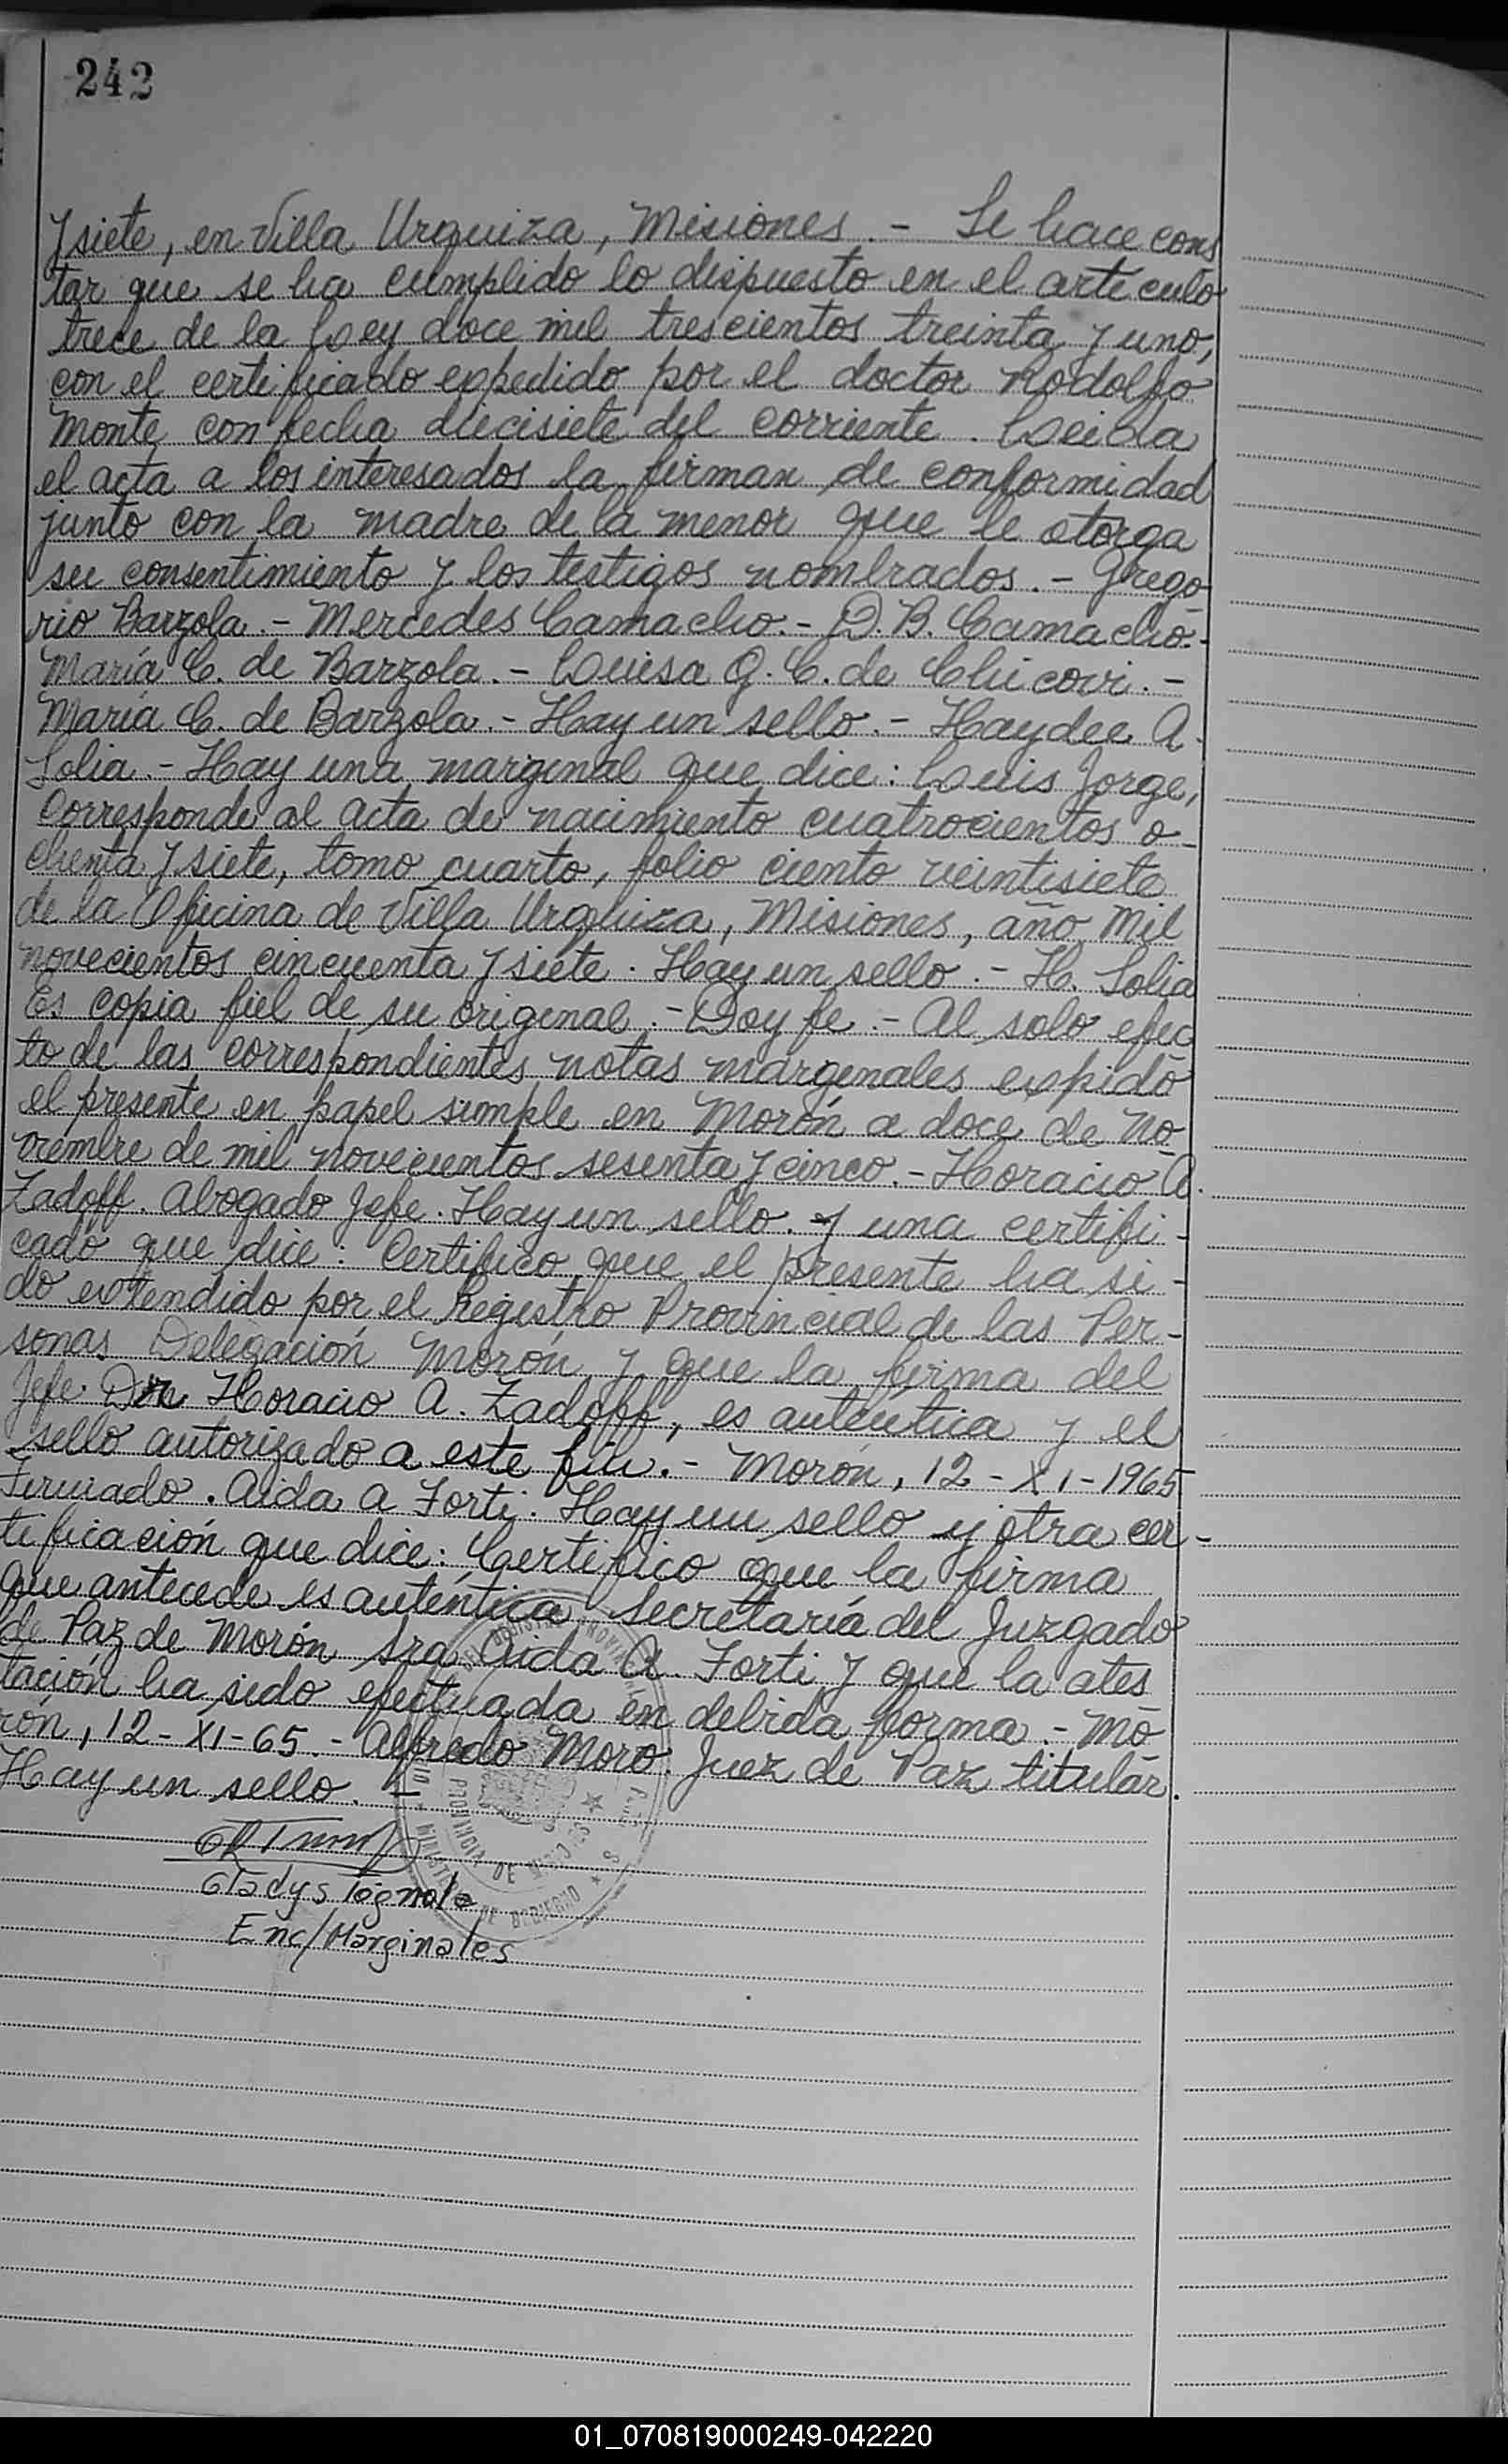 242
y siete, en Villa Urquiza, Misiones.- Se hace cons
tar que se ha cumplido lo dispuesto en el artículo
trece de la Ley doce mil trescientos treinta y uno,
con el certificado expedido por el doctor Rodolfo
Monte con fecha diecisiete del corriente. Leida
el acta a los interesados la firman de conformidad
junto con la madre de la menor que le otorga
su consentimiento y los testigos nombrados.- Grego-
rio Barzola.- Mercedes Camacho.- D. B. Camacho.-
María C. de Barzola.- Luisa G. C. de Chicovi.-
María C. de Barzola.- Hay un sello.- Haydee A.
Solia.- Hay una marginal que dice: Luis Jorge,
Corresponde al acta de nacimiento cuatrocientos o-
chenta y siete, tomo cuarto, folio ciento veintisiete
de la Oficina de Villa Urquiza, Misiones, año mil
novecientos cincuenta y siete. Hay un sello.- H. Solia
Es copia fiel de su original.- Doy fe.- Al solo efec
to de las correspondientes notas marginales expido
el presente en papel simple en Morón a doce de no-
viembre de mil novecientos sesenta y cinco.- Horacio A.
Zadoff. Abogado Jefe. Hay un sello. y una certifi-
cado que dice: Certifico que el presente ha si-
do extendido por el Registro Provincial de las Per-
sonas Delegación Morón y que la firma del
Jefe Dn Horacio A. Zadoff, es auténtica y el
sello autorizado a este fin.- Morón, 12-XI-1965
Firmado. Aida A Forti. Hay un sello y otra cer-
tificación que dice: Certifico que la firma
que antecede es auténtica Secretaría del Juzgado
de Paz de Morón Sra Aida A. Forti y que la ates
tación ha sido efectuada en debida forma.- Mo-
rón, 12-XI-65.- Alfredo Moro. Juez de Paz titular.
Hay un sello.-
Gladys Tognola
Enc/Marginales
MINISTERIO DE GOBIERNO
PROVINCIA DE
01_070819000249-042220